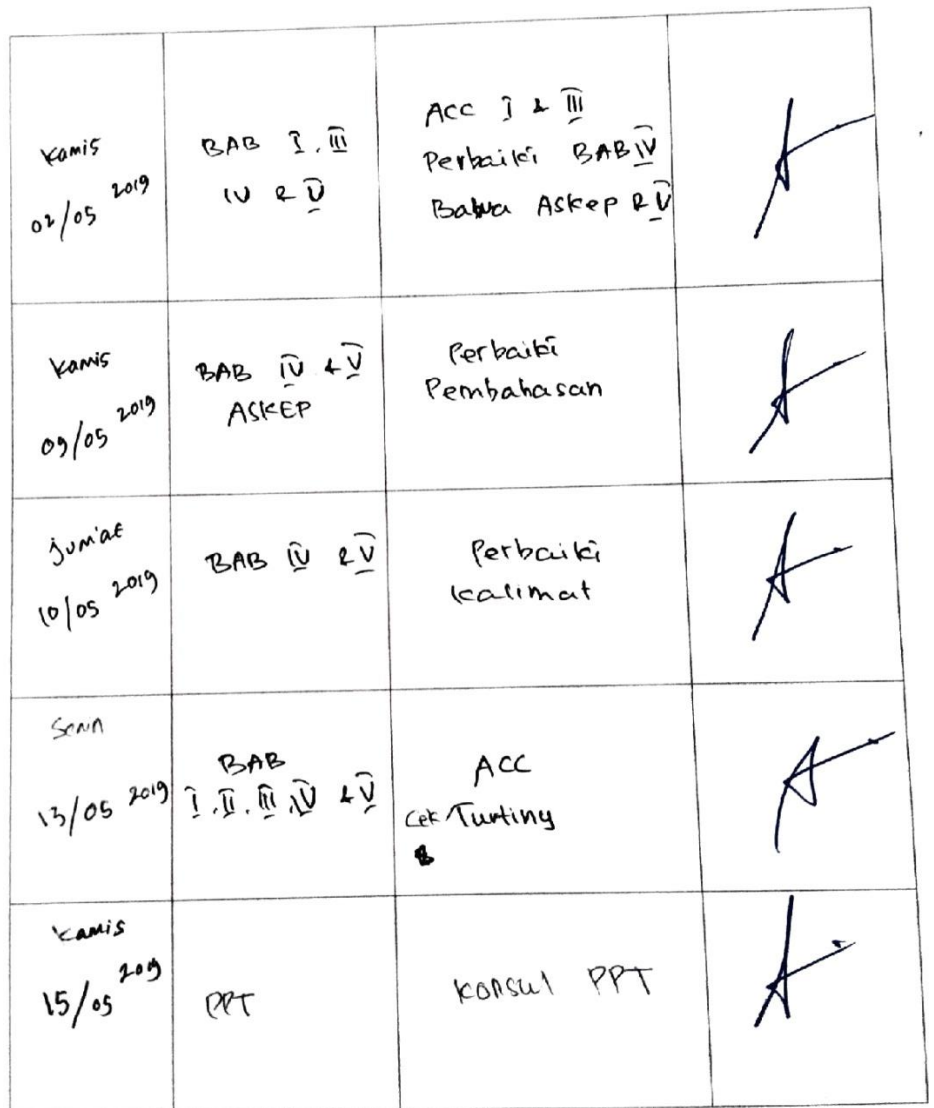 Kamis
02/05 2019
BAB I, III
IV & V
ACC I & III
Perbaiki BAB IV
Bahwa Askep & V
Kamis
09/05 2019
BAB IV & V
ASKEP
Perbaiki
Pembahasan
Jum'at
10/05 2019
BAB IV & V
Perbaiki
kalimat
Senin
13/05 2019
BAB
I, II, III, IV & V
ACC
Cek Turtiny
Kamis
15/05 2019
PPT
Konsul PPT